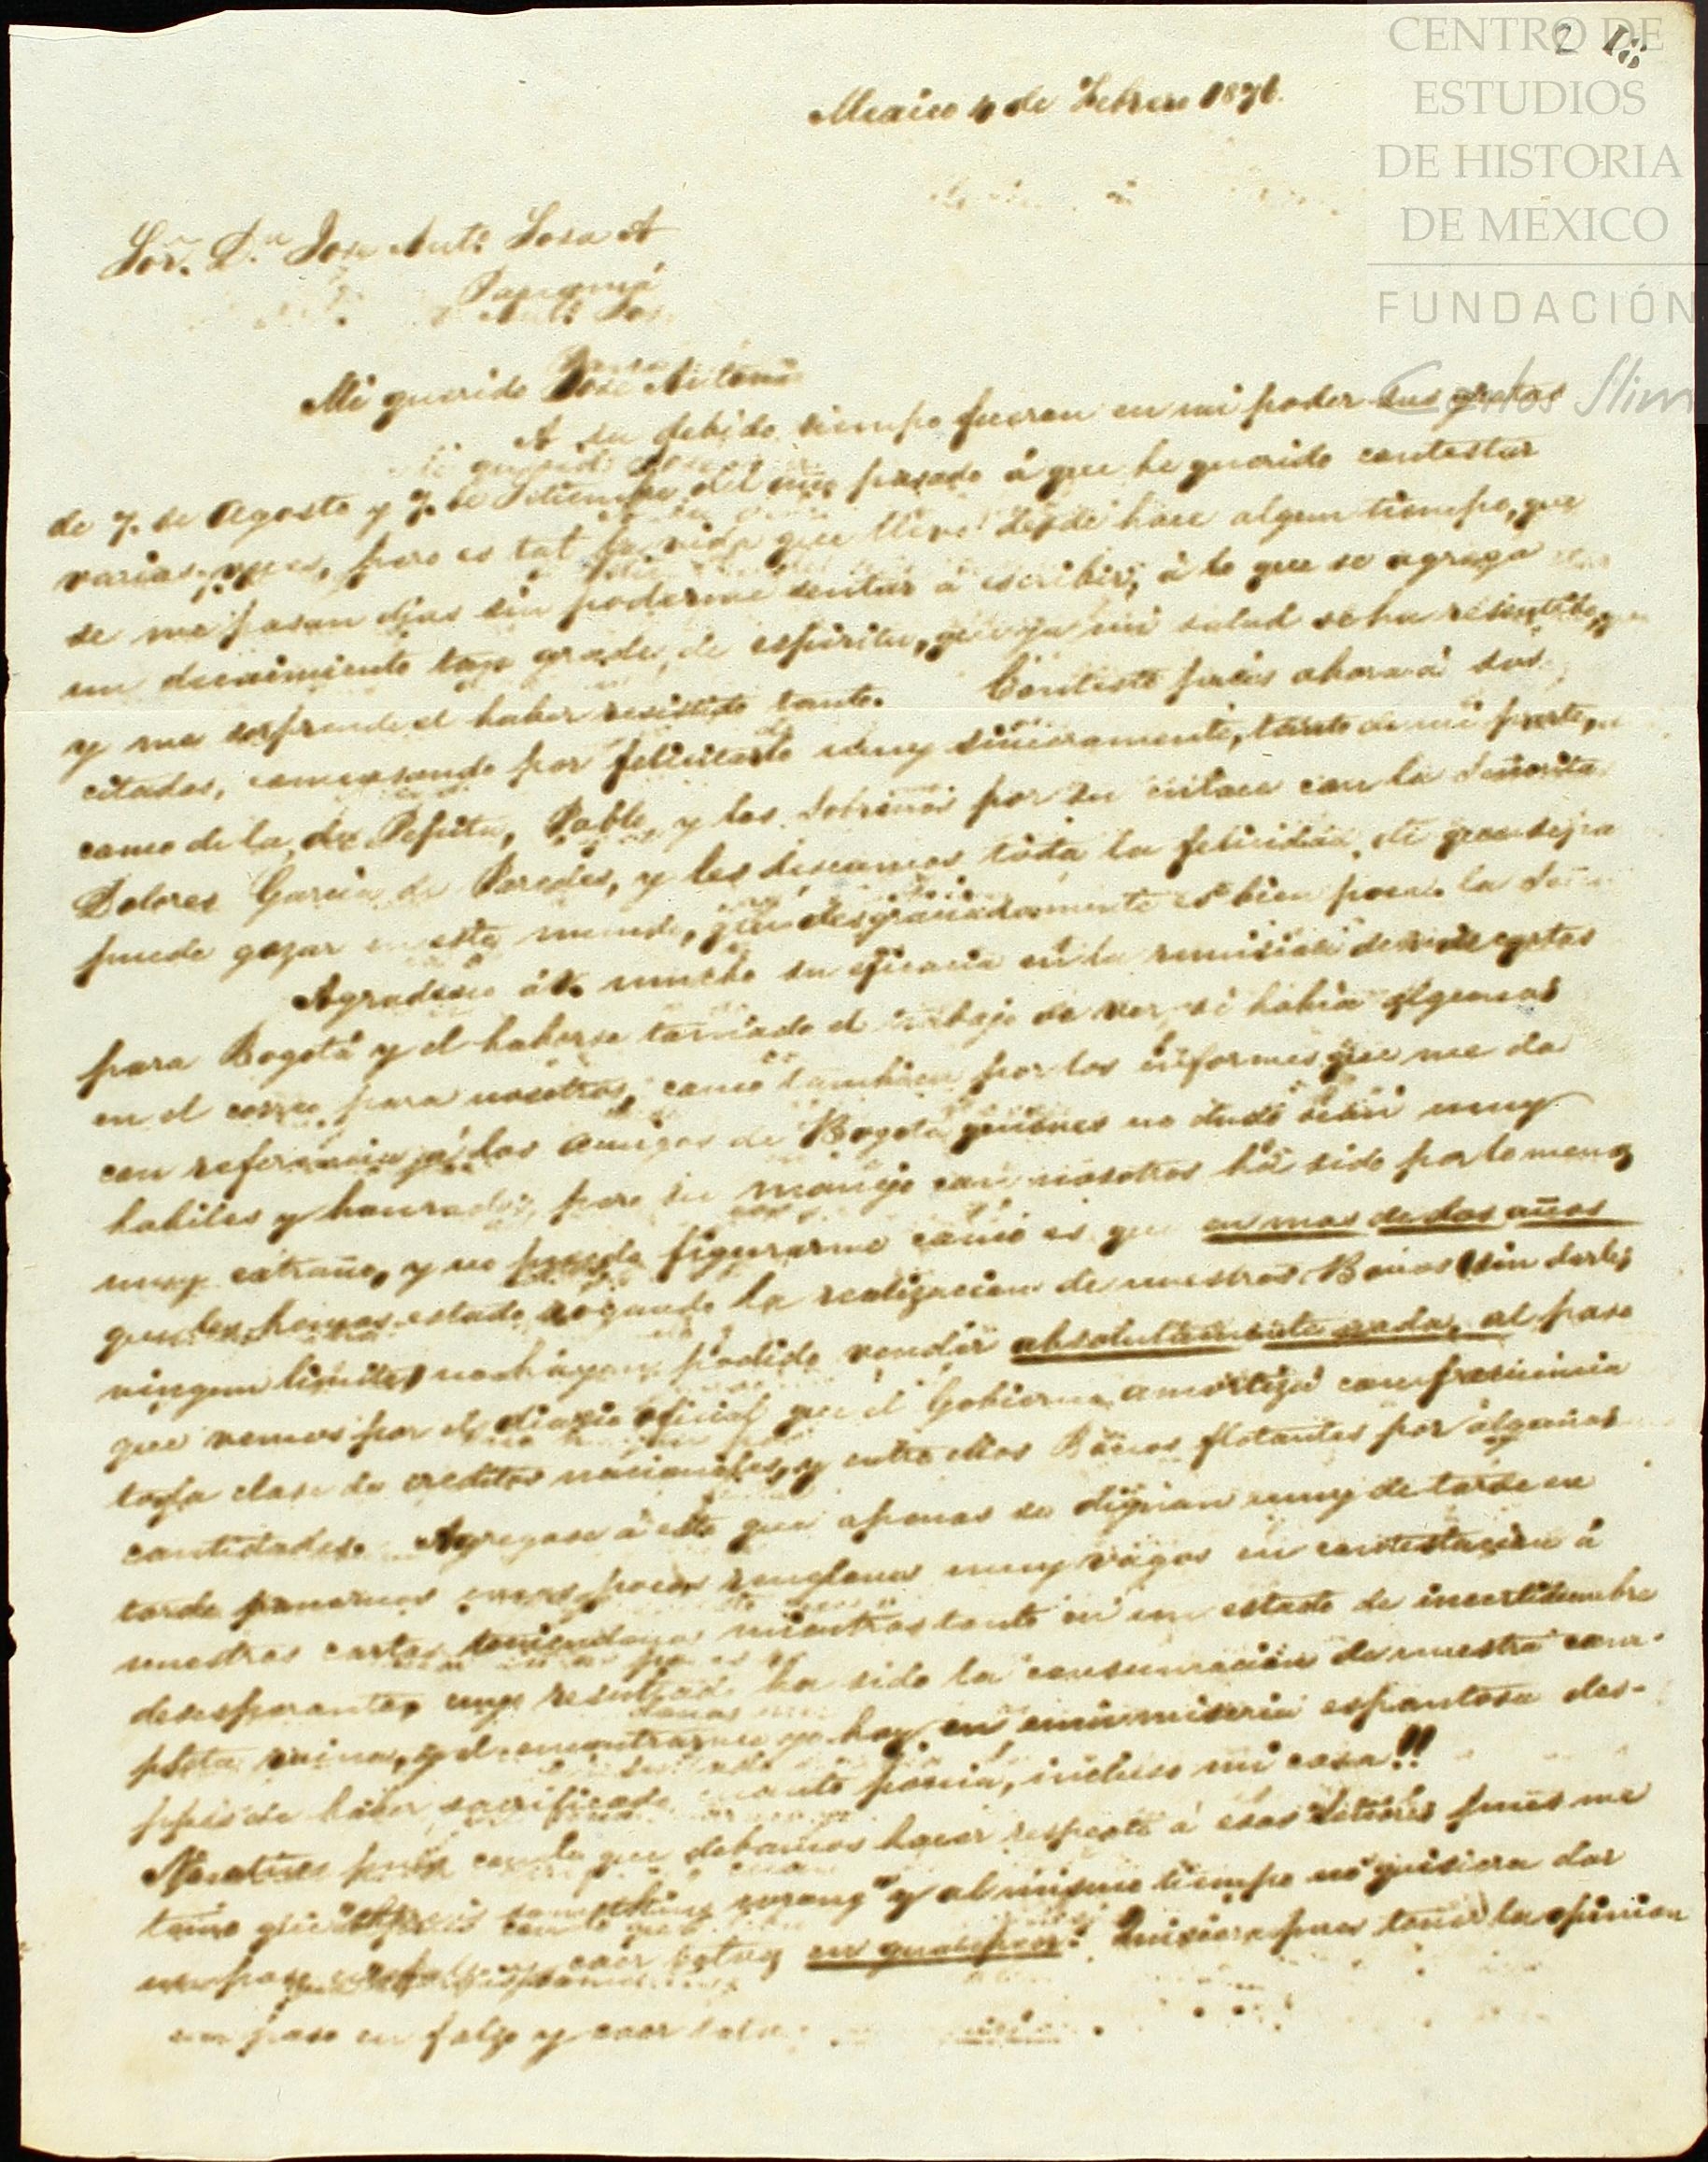 CENTRO DE
ESTUDIOS
DE HISTORIA
DE MÉXICO
FUNDACIÓN
Carlos Slim
2 18
Mexico 4 de Febrero 1871.
Sor. Dn Jose Anto Sosa A
Panamá
Mi querido Jose Antonio
A su debido tiempo fueron en mi poder sus gratas
de 7. de Agosto y 7. de Setiembre del año pasado á que he querido contestar
varias veces, pero es tal la vida que llevo desde hace algun tiempo, que
se me pasan dias sin poderme sentar á escribir, á lo que se agrega
un decaimiento tan grande de espiritu, que ya mi salud se ha resentido,
y me sorprende el haber resistido tanto. Contesto pues ahora á sus
citadas, comenzando por felicitarlo muy sinceramente, tanto de mi parte,
como de la de Pepita, Pablo y los sobrinos por su enlace con la Señorita
Dolores Garcia de Paredes, y les deseamos toda la felicidad de que se
puede gozar en este mundo, que desgraciadamente es bien poca.
Agradesco á V. mucho su eficacia en la remision de mis cartas
para Bogotá y el haberse tomado el trabajo de ver si habia algunas
en el correo para nosotros, como tambien por los informes que me da
con referencia á los amigos de Bogotá quienes no dudo sean muy
habiles y honrados, pero su manejo con nosotros ha sido por lo menos
muy extraño, y no puedo figurarme como es que en mas de dos años
que les hemos estado rogando la realizacion de nuestros Bonos sin darles
ningun limite, no hayan podido vender absolutamente nada, al paso
que vemos por el diario oficial que el Gobierno amortiza con frecuencia
toda clase de creditos nacionales, y entre ellos Bonos flotantes por algunas
cantidades. Agregase á esto que apenas se dignan muy de tarde en
tarde ponernos unos pocos renglones muy vagos en contestacion á
nuestras cartas teniendonos mientras tanto en un estado de incertidumbre
desesperante, cuyo resultado ha sido la consumacion de nuestra com-
pleta ruina, y el encontrarme yo hoy en una miseria espantosa des-
pues de haber sacrificado cuanto poseia, incluso mi casa!!
No atino pues con lo que debamos hacer respecto á esos Señores pues me
temo que there is something wrong" y al mismo tiempo no quisiera dar
un paso en falso y caer estoy en guasopeor. Quisiera pues tener la opinion
un paso en falso y caer